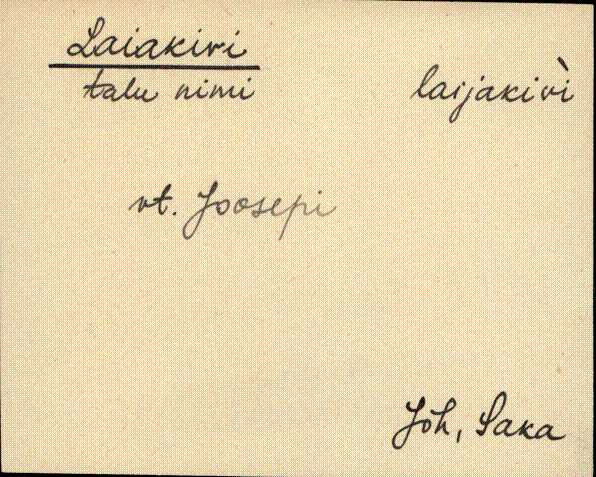 Laiakivi
talu nimi laijakivì
vt. Joosepi
Jõh, Saka